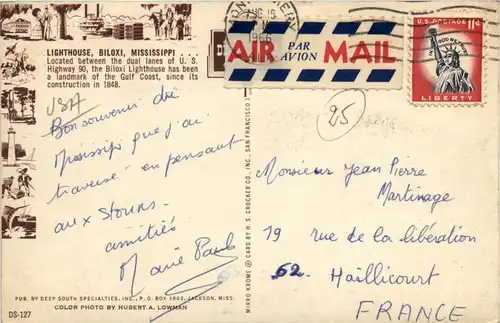 LIGHTHOUSE, BILOXI, MISSISSIPPI
Located between the dual lanes of U. S.
Highway 90, the Biloxi Lighthouse has been
a landmark of the Gulf Coast, since its
construction in 1848.
USA
Bon souvenir du
Mississipi que j'ai
traversé en pensant
aux
amitiés
Marie Paule
PUB. BY DEEP SOUTH SPECIALTIES, INC., P. O. BOX 1902, JACKSON, MISS.
DS-127
COLOR PHOTO BY HUBERT A. LOWMAN
MIRRO-KROME ® CARD BY H. S. CROCKER CO., INC., SAN FRANCISCO 1
AUG 16
1966
AIR PAR AVION MAIL
U.S. POSTAGE 11¢
IN GOD WE TRUST
LIBERTY
25
Monsieur Jean Pierre
Martinage
19 rue de la libération
62. Haillicourt
FRANCE